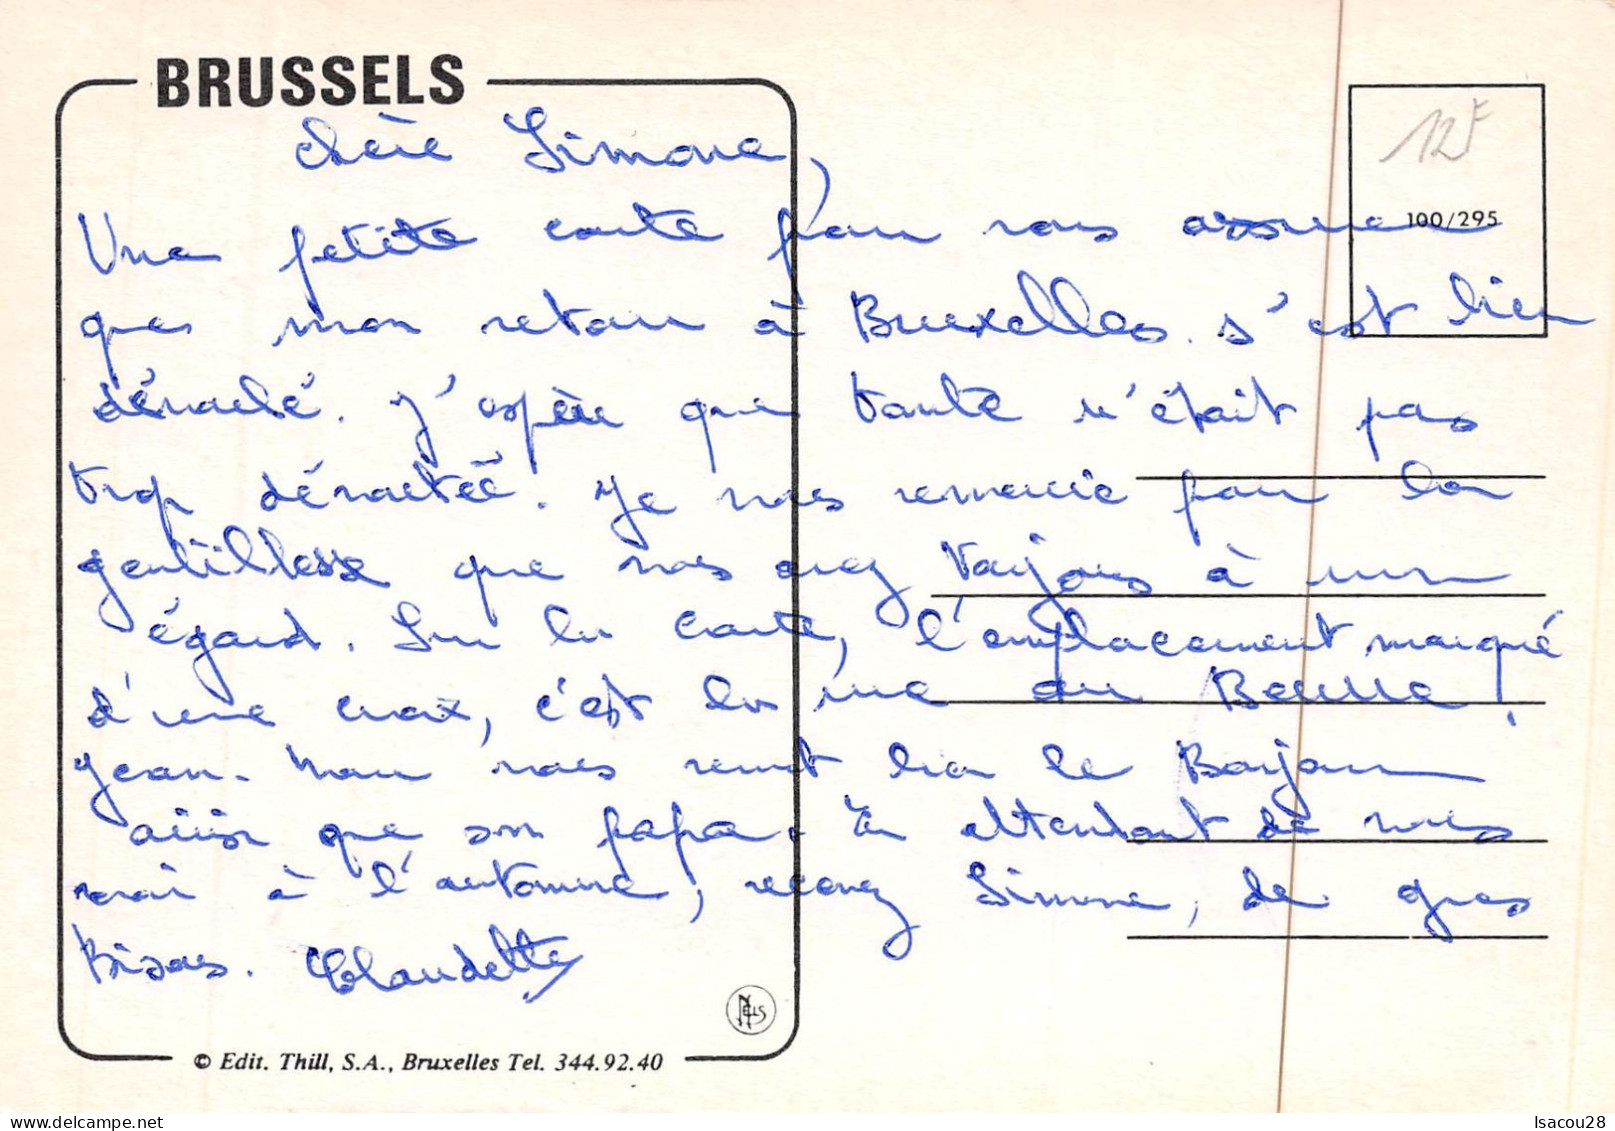 BRUSSELS
Chère Simone,
12F
100/295
Une petite carte pour vous assurer
que mon retour à Bruxelles s'est bien
déroulé. J'espère que tante n'était pas
trop déroutée. Je vous remercie pour la
gentillesse que vous avez toujours à mon
égard. Sur la carte, l'emplacement marqué
d'une croix, c'est la rue au Beurre!
Jean-Marc vous remet bien le Bonjour
ainsi que son papa. En attendant de vous
voir à l'automne, recevez Simone, de gros
Bisous. Claudette
NELS
© Edit. Thill, S.A., Bruxelles Tel. 344.92.40
Isacou28